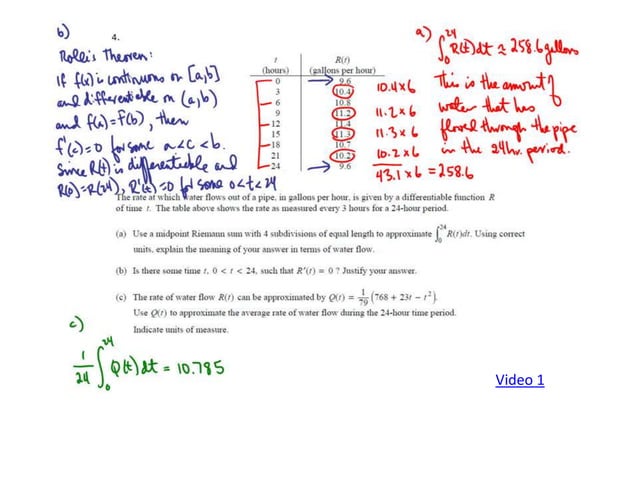 b)
Rolle's Theorem:
If f(x) is continuous on [a,b]
and differentiable on (a,b)
and f(a)=f(b), then
f'(c)=0 for some a<c<b.
Since R(t) is differentiable and
R(0)=R(24), R'(t)=0 for some 0<t<24
4.
t R(t)
(hours) (gallons per hour)
0 9.6
3 10.4
6 10.8
9 11.2
12 11.4
15 11.3
18 10.7
21 10.2
24 9.6
10.4 x 6
11.2 x 6
11.3 x 6
10.2 x 6
43.1 x 6 = 258.6
a) ∫₀²⁴ R(t)dt ≈ 258.6 gallons
This is the amount of
water that has
flowed through the pipe
in the 24 hr. period.
The rate at which water flows out of a pipe, in gallons per hour, is given by a differentiable function R
of time t. The table above shows the rate as measured every 3 hours for a 24-hour period.
(a) Use a midpoint Riemann sum with 4 subdivisions of equal length to approximate ∫₀²⁴ R(t)dt. Using correct
units, explain the meaning of your answer in terms of water flow.
(b) Is there some time t, 0 < t < 24, such that R'(t) = 0 ? Justify your answer.
(c) The rate of water flow R(t) can be approximated by Q(t) = 1/79 (768 + 23t − t²).
Use Q(t) to approximate the average rate of water flow during the 24-hour time period.
Indicate units of measure.
c)
1/24 ∫₀²⁴ Q(t)dt = 10.785
Video 1